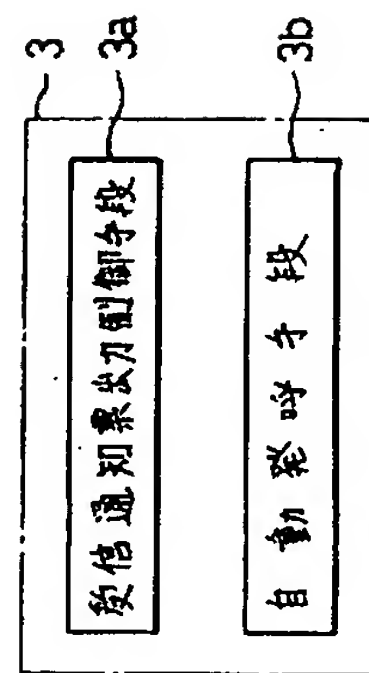 3
3a
受信通知票出力制御手段
3b
自動発呼手段